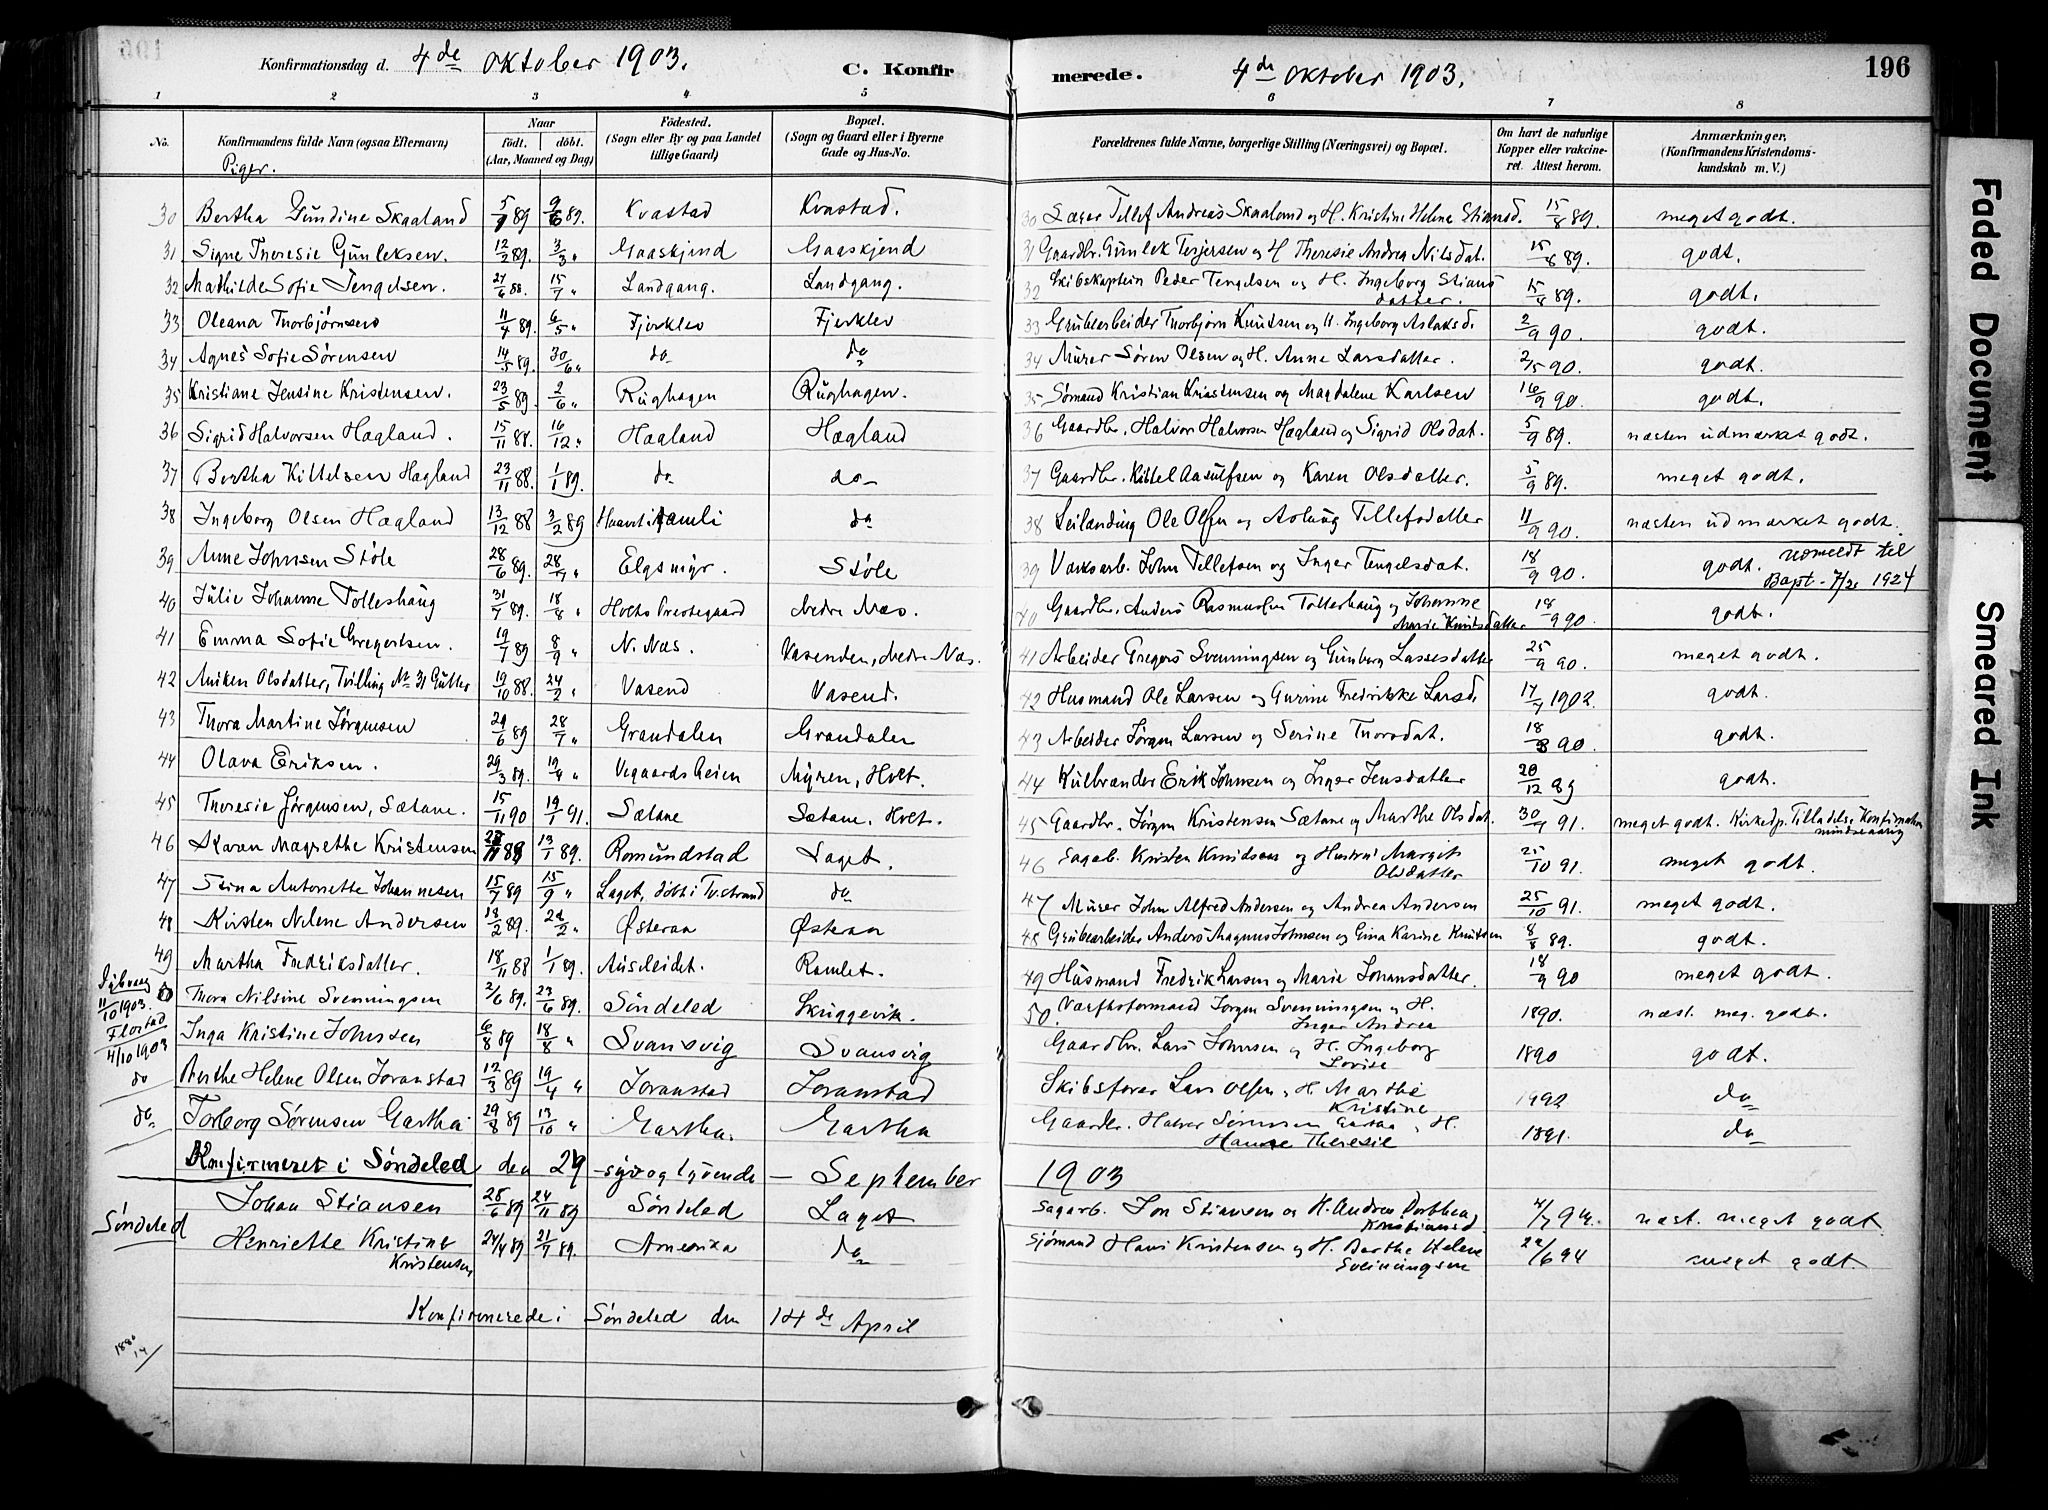 Konfirmationsdag d. 4de Oktober 1903. C. Konfirmerede. 4de Oktober 1903. 196
1 2 3 4 5 6 7 8
No. Konfirmandens fulde Navn (ogsaa Efternavn) Naar født. døbt. (Aar, Maaned og Dag) Fødested. (Sogn eller By og paa Landet tillige Gaard) Bopæl. (Sogn og Gaard eller i Byerne Gade og Hus-No. Forældrenes fulde Navne, borgerlige Stilling (Næringsvei) og Bopæl. Om havt de naturlige Kopper eller vakcineret. Attest herom. Anmærkninger. (Konfirmandens Kristendomskundskab m. V.)
Piger.
30 Bertha Gundine Skaaland 5/9 89 9/6 89. Kvastad Kvastad. 30 Tellef Andreas Skaaland og H. Kristine Helene Stiansd. 15/8 89. meget godt.
31 Signe Theresie Gunleksen. 12/2 89. 3/3 " Gaaskjend Gaaskjend 31 Gaardbr. Gunlek Terjersen og H Theresie Andrea Nilsdat. 15/8 89. godt.
32 Mathilde Sofie Tengelsen. 27/6 88. 15/7 " Landgang. Landgang. 32 Skibskaptein Peder Tengelsen og H. Ingeborg Stiansdatter. 15/8 89. godt.
33 Oleana Thorbjørnsen 11/4 89. 6/5 " Fjerklev Fjerklev 33 Grubearbeider Thorbjørn Knudsen og H. Ingeborg Aslaksd. 2/9 90. godt.
34 Agnes Sofie Sørensen 14/5 89. 30/6 " do do 34 Murer Søren Olsen og H. Anne Larsdatter. 2/5 90. godt.
35 Kristiane Jensine Kristensen. 23/5 89. 2/6 " Rughagen Rughagen. 35 Sømand Kristian Kristensen og Magdalene Karlsen 16/9 90. godt.
36 Sigrid Halvorsen Hægland. 15/11 88. 16/12 " Hægland Hægland 36 Gaardbr. Halvor Halvorsen Hægland og Sigrid Olsdat. 5/9 89. næsten udmærket godt.
37 Bertha Kittelsen Hægland 23/11 88. 1/1 89. do do 37 Gaardbr. Kittel Aasulfsen og Karen Olsdatter. 5/9 89. meget godt.
38 Ingeborg Olsen Hægland 13/12 88 3/2 89 do 38 Leilending Ole Olsen og Aslaug Tellefsdatter 11/9 90. næsten udmærket godt.
39 Anne Johnsen Støle 28/6 89. 28/7 " Elgsmyr. Støle 39 Værksarb. John Tellefsen og Inger Tengelsdat. 18/9 90. godt. udmeldt til Bapt. 1924
40 Julie Johanne Tolleshaug 31/7 89. 18/8 " Holts Prestegaard Nedre Næs. 40 Gaardbr. Anders Rasmussen Tolleshaug og Johanne Marie Knudsdatter 18/9 90. godt.
41 Emma Sofie Gregertsen. 19/7 89 8/9 " N. Næs. Vasenden, Nedre Næs. 41 Arbeider Gregers Svenningsen og Gunborg Lassesdatter 25/9 90. meget godt.
42 Aniken Olsdatter, Tvilling No 31 Gutter 19/10 88. 24/2 " Vasend Vasend. 42 Husmand Ole Larsen og Gurine Fredrikke Larsd. 17/7 1902. godt.
43 Thora Martine Jørgensen 29/6 89 28/7 " Grandalen Grandalen 43 Arbeider Jørgen Larsen og Serine Thorsdat. 18/8 90. godt.
44 Olava Eriksen. 29/3 89. 19/4 " Vegaardsheien Myren, Holt. 44 Kulbrænder Erik Johnsen og Inger Jensdatter 28/12 89 godt.
45 Theresie Jørgensen, Sætane. 15/11 90 19/1 91. Sætane Sætane, Holt. 45 Gaardbr. Jørgen Kristensen Sætane og Marthe Olsdat. 30/4 91. meget godt. Kirkedp. Tilladelse Konfirmation mindreaarig
46 Karen Magrethe Kristensen 13/1 89. Romundstad Laget. 46 Sagarb. Kristen Knudsen og Hustru Margit Olsdatter 25/10 91. meget godt.
47 Stina Antonette Johannesen 15/7 89 15/9 " Laget, døbt i Tvedestrand do 47 Murer John Alfred Andersen og Andrea Andersen 25/10 91. meget godt.
48 Kirsten Nelene Andersen 18/2 89. 24/2 " Østeraa Østeraa 48 Grubearbeider Anders Magnus Johnsen og Gina Karine Knudsen 8/8 89. godt.
49 Martha Fredriksdatter. 18/11 88 1/1 89. Auseleidet. Ramlet. 49 Husmand Fredrik Larsen og Marie Johansdatter. 18/9 90 meget godt.
Dybvaag 11/10 1903. 50 Thora Nilsine Svenningsen 2/6 89. 23/6 89. Søndeled Skuggevik. 50. Værftsformand Jørgen Svenningsen og H. Inger Andrea 1890. næst. meg. godt.
Flostad 4/10 1903 Inga Kristine Johnsen 6/8 89 18/8 " Svansvig Svansvig Gaardbr. Lars Johnsen og H. Ingeborg Lovise 1890 godt.
do Berthe Helene Olsen Joranstad 12/3 89 19/4 " Joranstad Joranstad Skibsfører Lars Olsen, H. Marthe Kristine 1892 do
do Torborg Sørensen Gartha 29/8 89 13/10 " Gartha. Gartha Gaardbr. Halvor Sørensen Gartha, H. Hanne Theresie 1891. do
Konfirmeret i Søndeled den 29 - syv og tyvende - September 1903
Søndeled Johan Stiansen 28/6 89 24/11 89 Søndeled Laget Sagarb. Jon Stiansen og H. Andrea Dorthea Kristiansd. 4/7 94. næst. meget godt.
Henriette Kristine Kristensen 24/4 89 21/7 89. Amerika do Sjømand Hans Kristensen og H. Berthe Helene Sveinungsen 22/6 94 meget godt.
Konfirmerede i Søndeled den 14de April
Faded Document
Smeared Ink